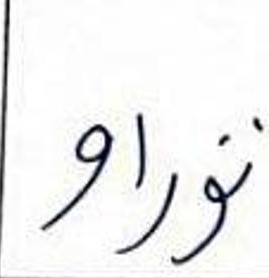 نتوراو